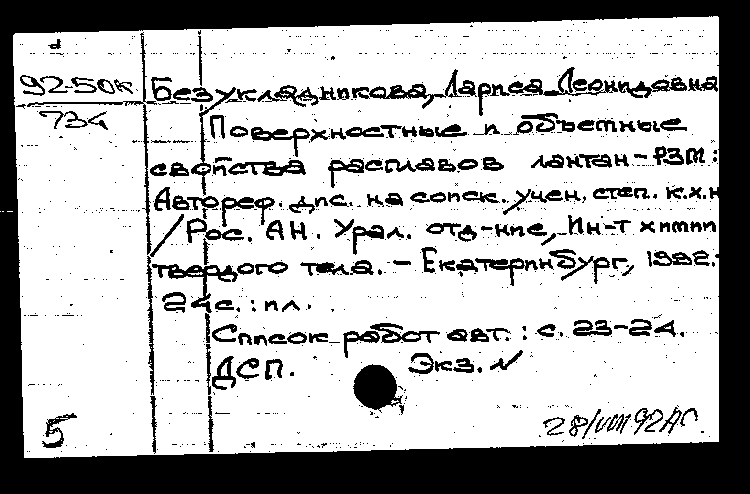 92-50к Безукладникова, Лариса Леонидовна
734
Поверхностные и объемные
свойства расплавов лантан-РЗМ:
Автореф. дис. на соиск. учен. степ. к.х.н
/ Рос. АН. Урал. отд-ние, Ин-т химии
твердого тела. - Екатеринбург, 1992.-
24с. : ил.
Список работ авт. : с. 23-24.
ДСП. Экз. N
5
28/VIII 92